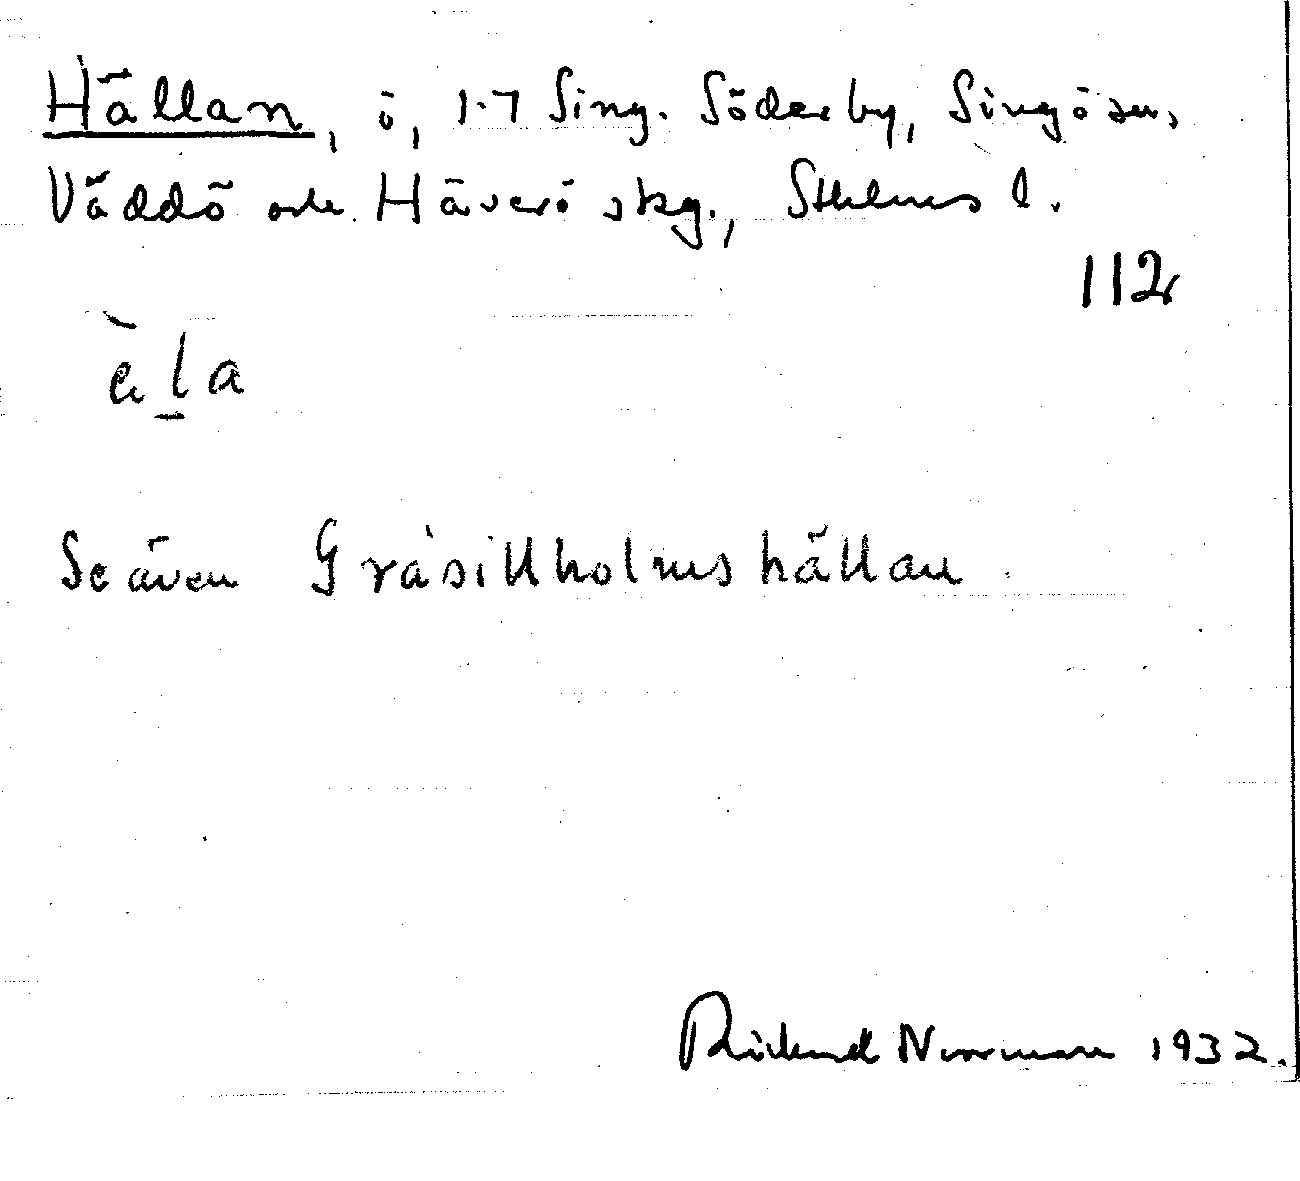 Hällan, ö, 1-7 Sing. Söderby, Singö sn,
Väddö och Häverö skg., Sthlms l.
112
èḻa
Se även Gråsillholmshällan
Rickard Norrman 1932.